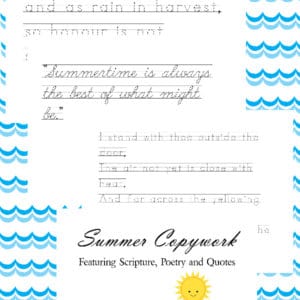 and as rain in harvest,
so honour is not
"Summertime is always
the best of what might
be."
I stand with thee outside the
door,
The air not yet is close with
heat,
And far across the yellowing
Summer Copywork
Featuring Scripture, Poetry and Quotes